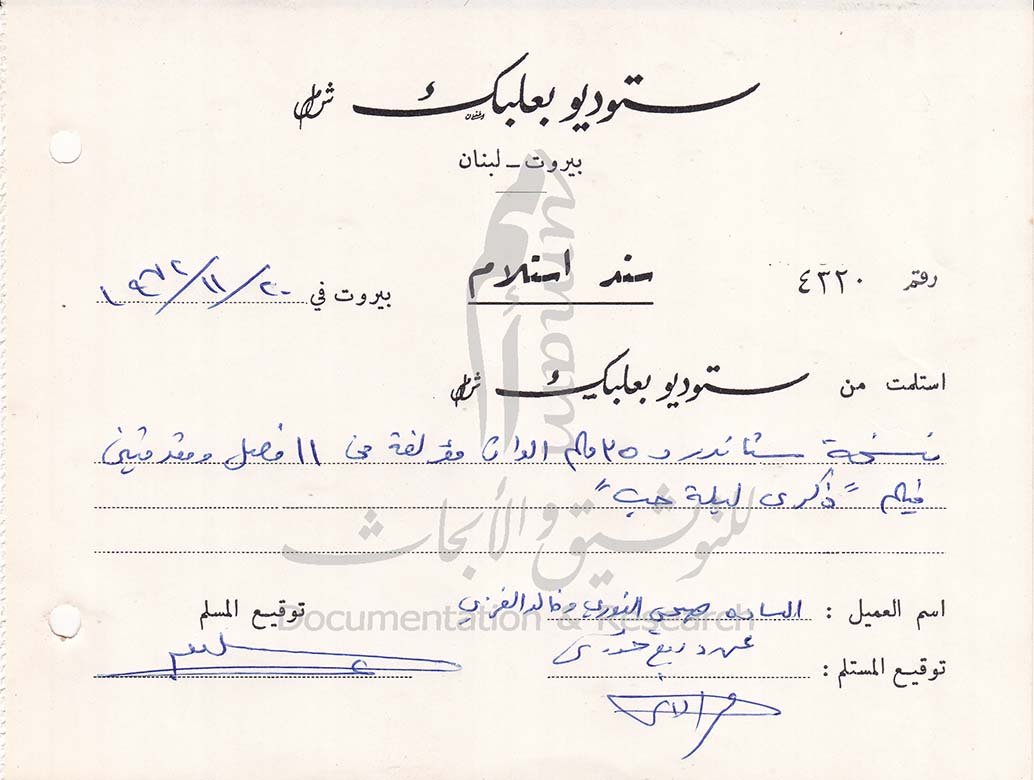 ستوديو بعلبك ش م ل
بيروت ـ لبنان
رقم ٤٣٢٠
سند استلام
بيروت في ٢٠/١١/١٩٧٢
استلمت من ستوديو بعلبك ش م ل
نسخة ستاندرد ٣٥ ملم الوان مؤلفة من ١١ فصل ومقدمتين
فيلم "ذكرى ليلة حب"
اسم العميل : الساده صبحي النوري وخالد الغزي
توقيع المسلم
توقيع المستلم :
umam
للتوثيق والأبحاث
Documentation & Research